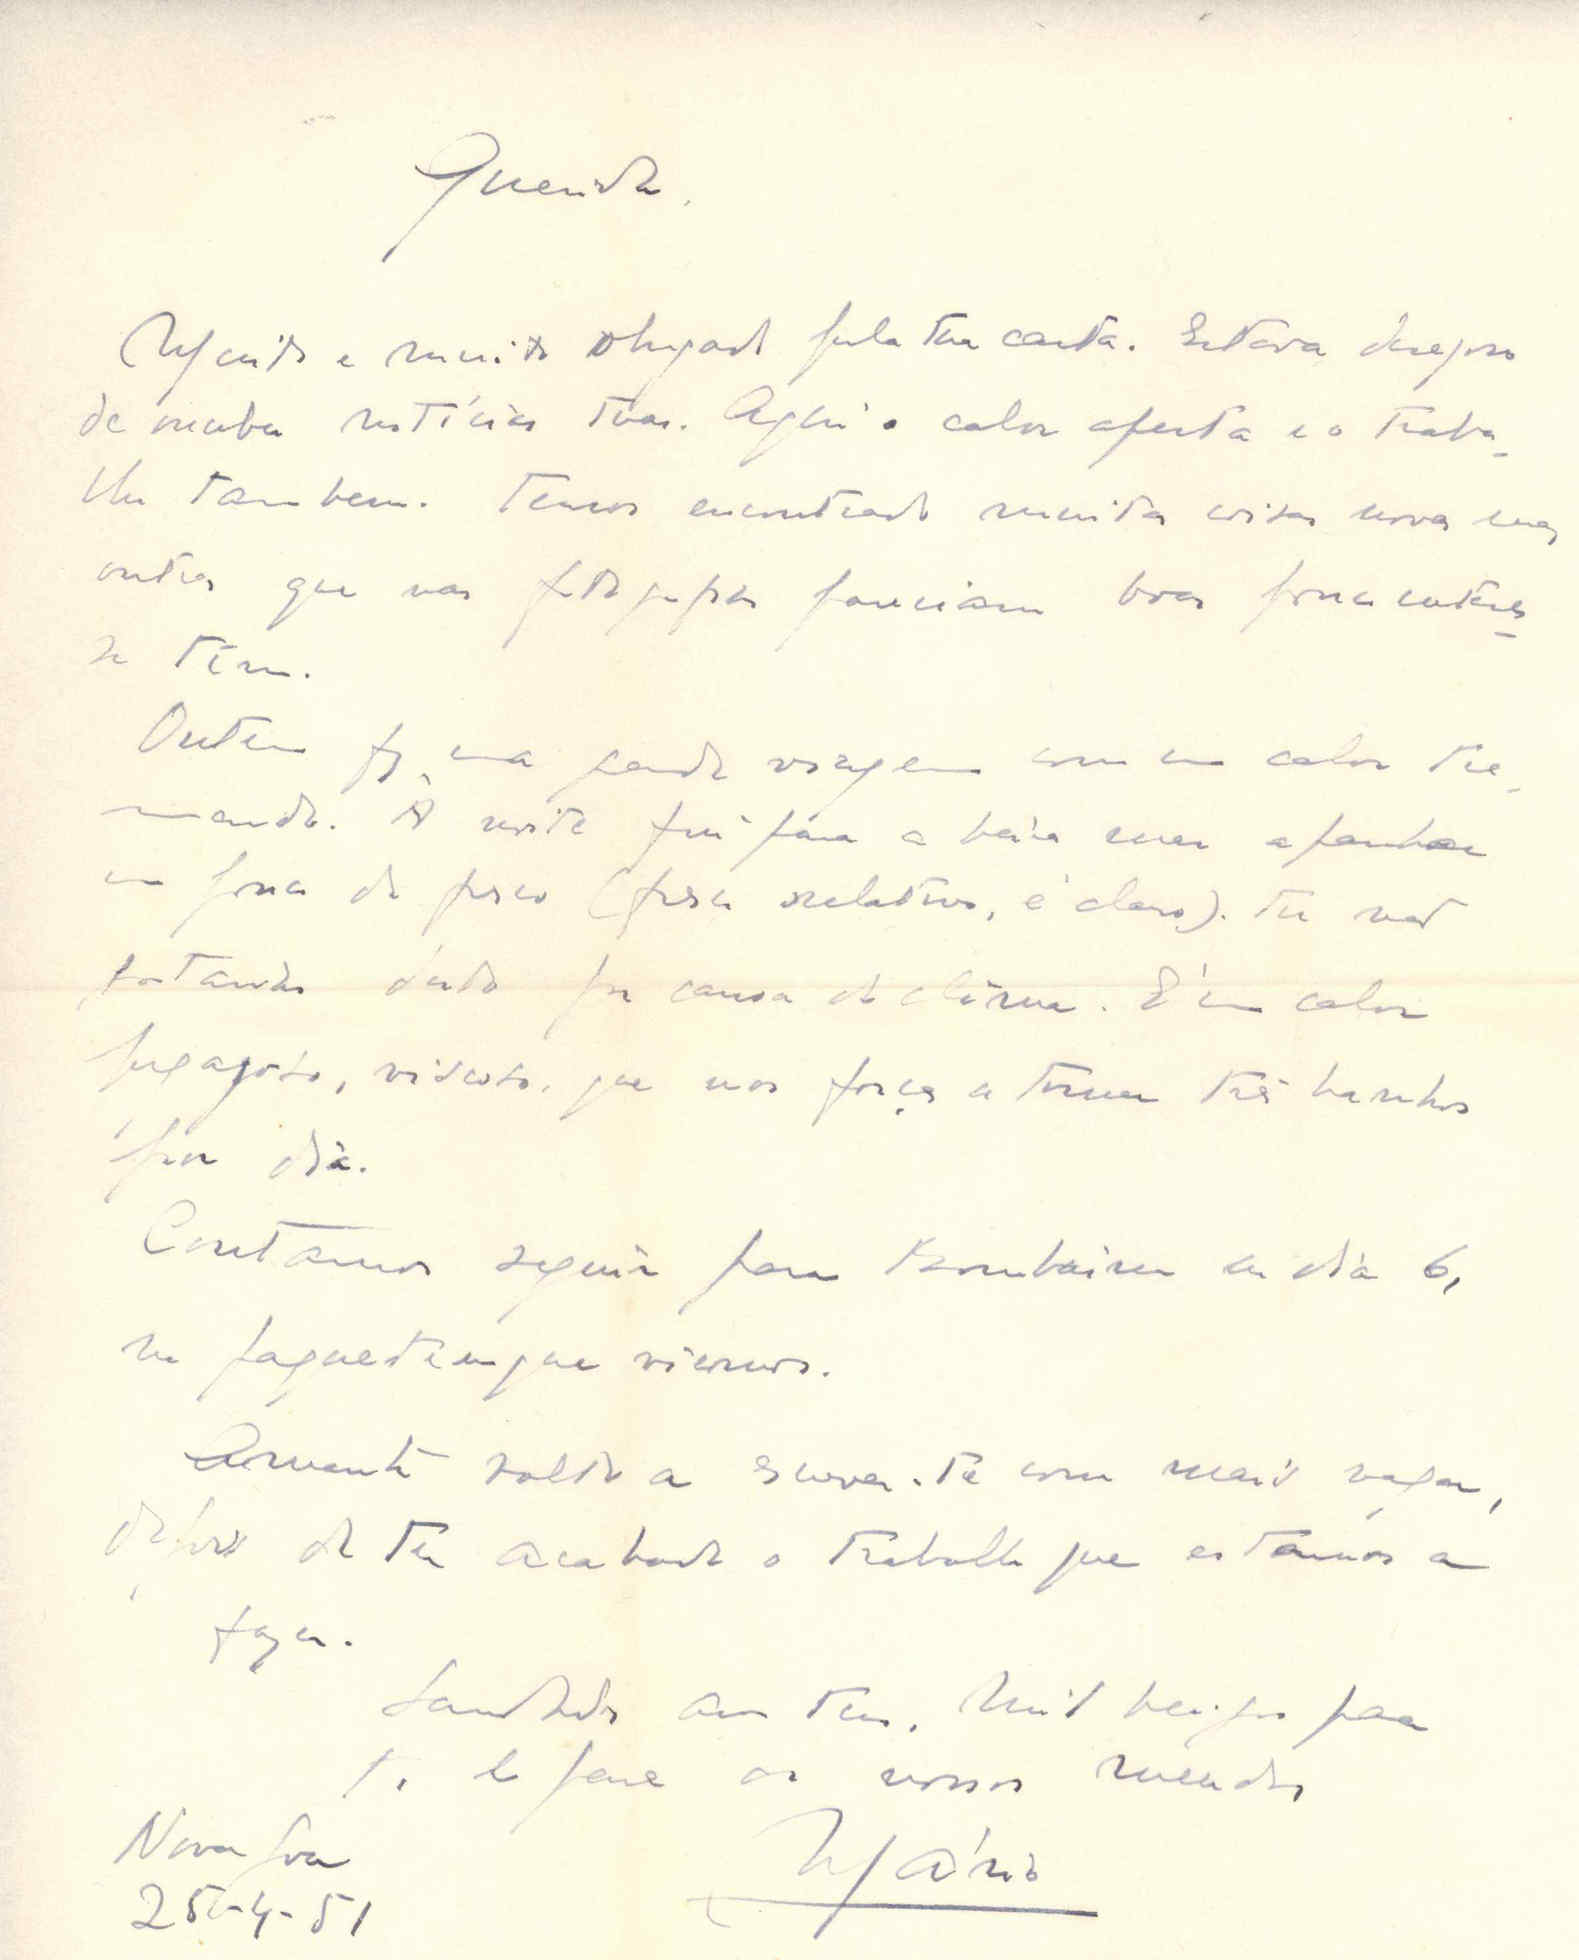 Querida,
Muito e muito obrigado pela tua carta. Estava desejoso
de receber notícias tuas. Aqui o calor aperta e o traba-
lho tambem. Temos encontrado muitas coisas novas mas
outras que nas fotografias pareciam boas pouco interes-
se têm.
Ontem fiz uma grande viagem com um calor tre-
mendo. À noite fui para a beira mar apanhar
um pouco de fresco (fresco relativo, é claro). Tu não
gostarias disto por causa do clima. É um calor
pegajoso, viscoso, que nos força a tomar três banhos
por dia.
Contamos seguir para Bombaim em dia 6,
no paquete em que viemos.
Àmanhã volto a escrever-te com mais vagar,
depois de ter acabado o trabalho que estamos a
fazer.
Saudades aos teus. Mil beijos para
ti e para os nossos
Mário
Nova Goa
25-4-51